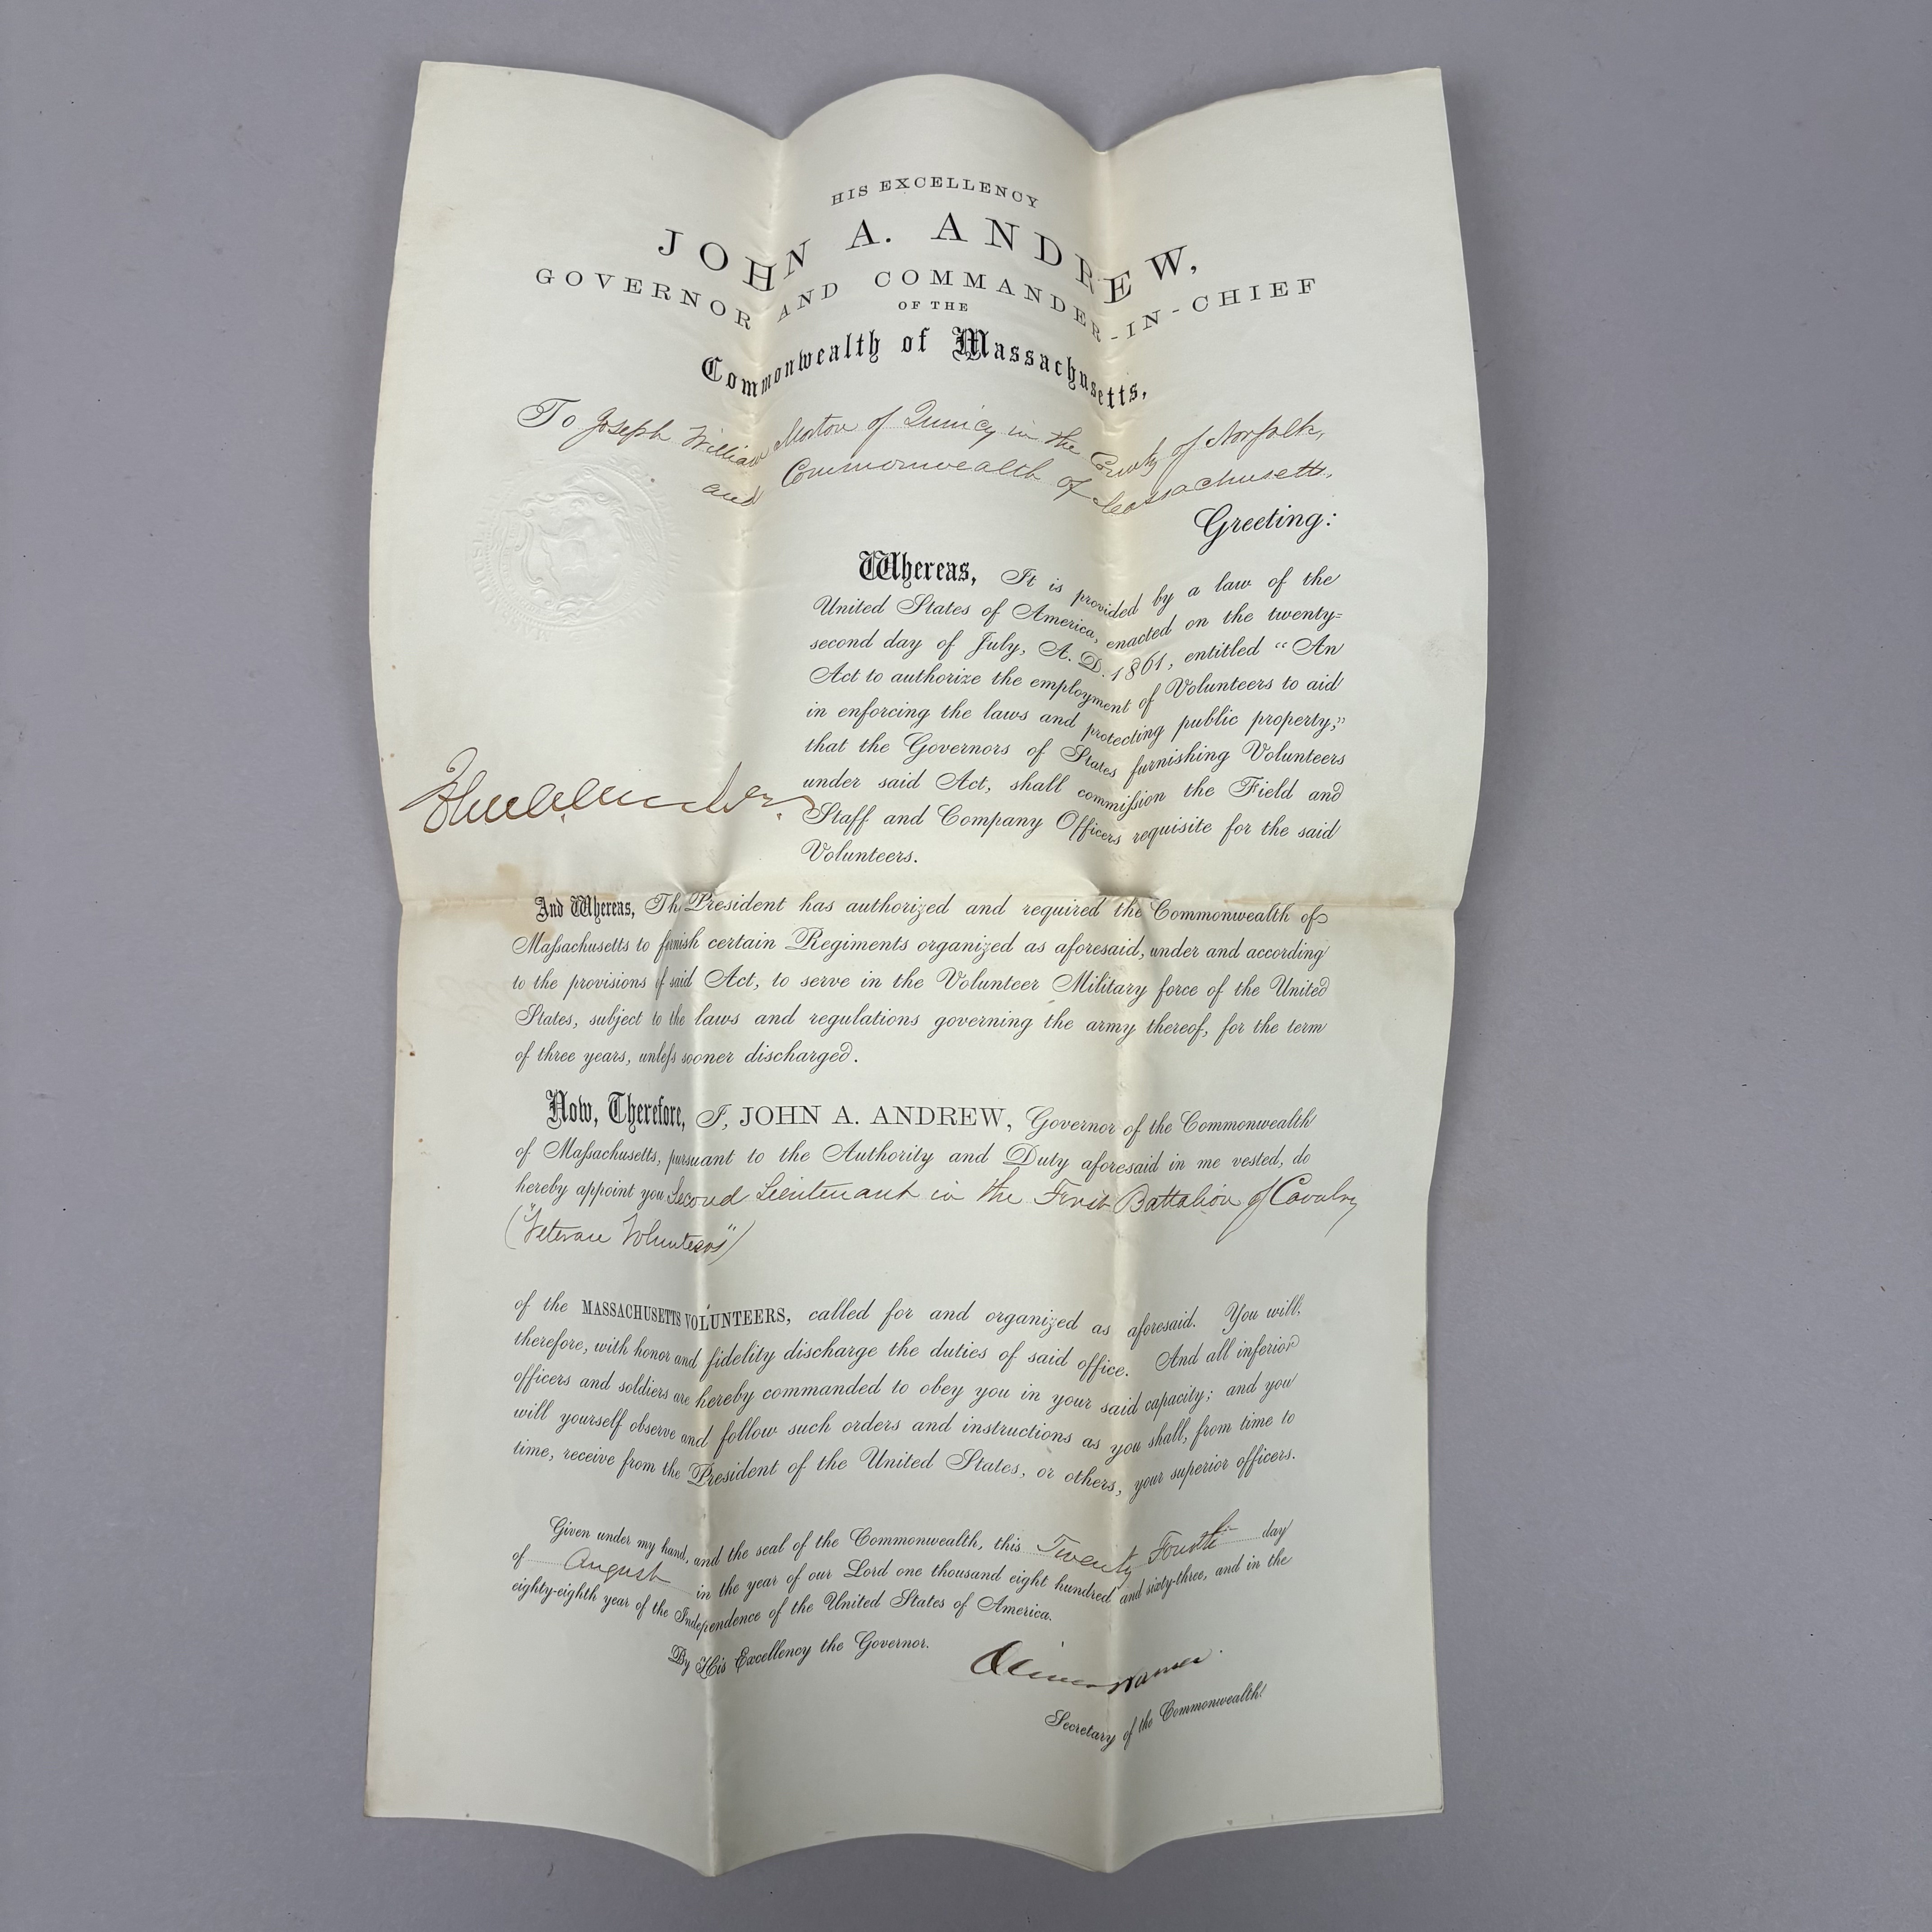 HIS EXCELLENCY
JOHN A. ANDREW,
GOVERNOR AND COMMANDER-IN-CHIEF
OF THE
Commonwealth of Massachusetts,
To Joseph William Morton of Quincy in the County of Norfolk,
and Commonwealth of Massachusetts,
Greeting:
Whereas, It is provided by a law of the
United States of America, enacted on the twenty-
second day of July, A. D. 1861, entitled "An
Act to authorize the employment of Volunteers to aid
in enforcing the laws and protecting public property,"
that the Governors of States furnishing Volunteers
under said Act, shall commission the Field and
Staff and Company Officers requisite for the said
Volunteers.
And Whereas, The President has authorized and required the Commonwealth of
Massachusetts to furnish certain Regiments organized as aforesaid, under and according
to the provisions of said Act, to serve in the Volunteer Military force of the United
States, subject to the laws and regulations governing the army thereof, for the term
of three years, unless sooner discharged.
Now, Therefore, I, JOHN A. ANDREW, Governor of the Commonwealth
of Massachusetts, pursuant to the Authority and Duty aforesaid in me vested, do
hereby appoint you Second Lieutenant in the First Battalion of Cavalry
("Veteran Volunteers")
of the MASSACHUSETTS VOLUNTEERS, called for and organized as aforesaid. You will,
therefore, with honor and fidelity discharge the duties of said office. And all inferior
officers and soldiers are hereby commanded to obey you in your said capacity; and you
will yourself observe and follow such orders and instructions as you shall, from time to
time, receive from the President of the United States, or others, your superior officers.
Given under my hand, and the seal of the Commonwealth, this Twenty Fourth day
of August in the year of our Lord one thousand eight hundred and sixty-three, and in the
eighty-eighth year of the Independence of the United States of America.
By His Excellency the Governor.
Oliver Warner
Secretary of the Commonwealth.